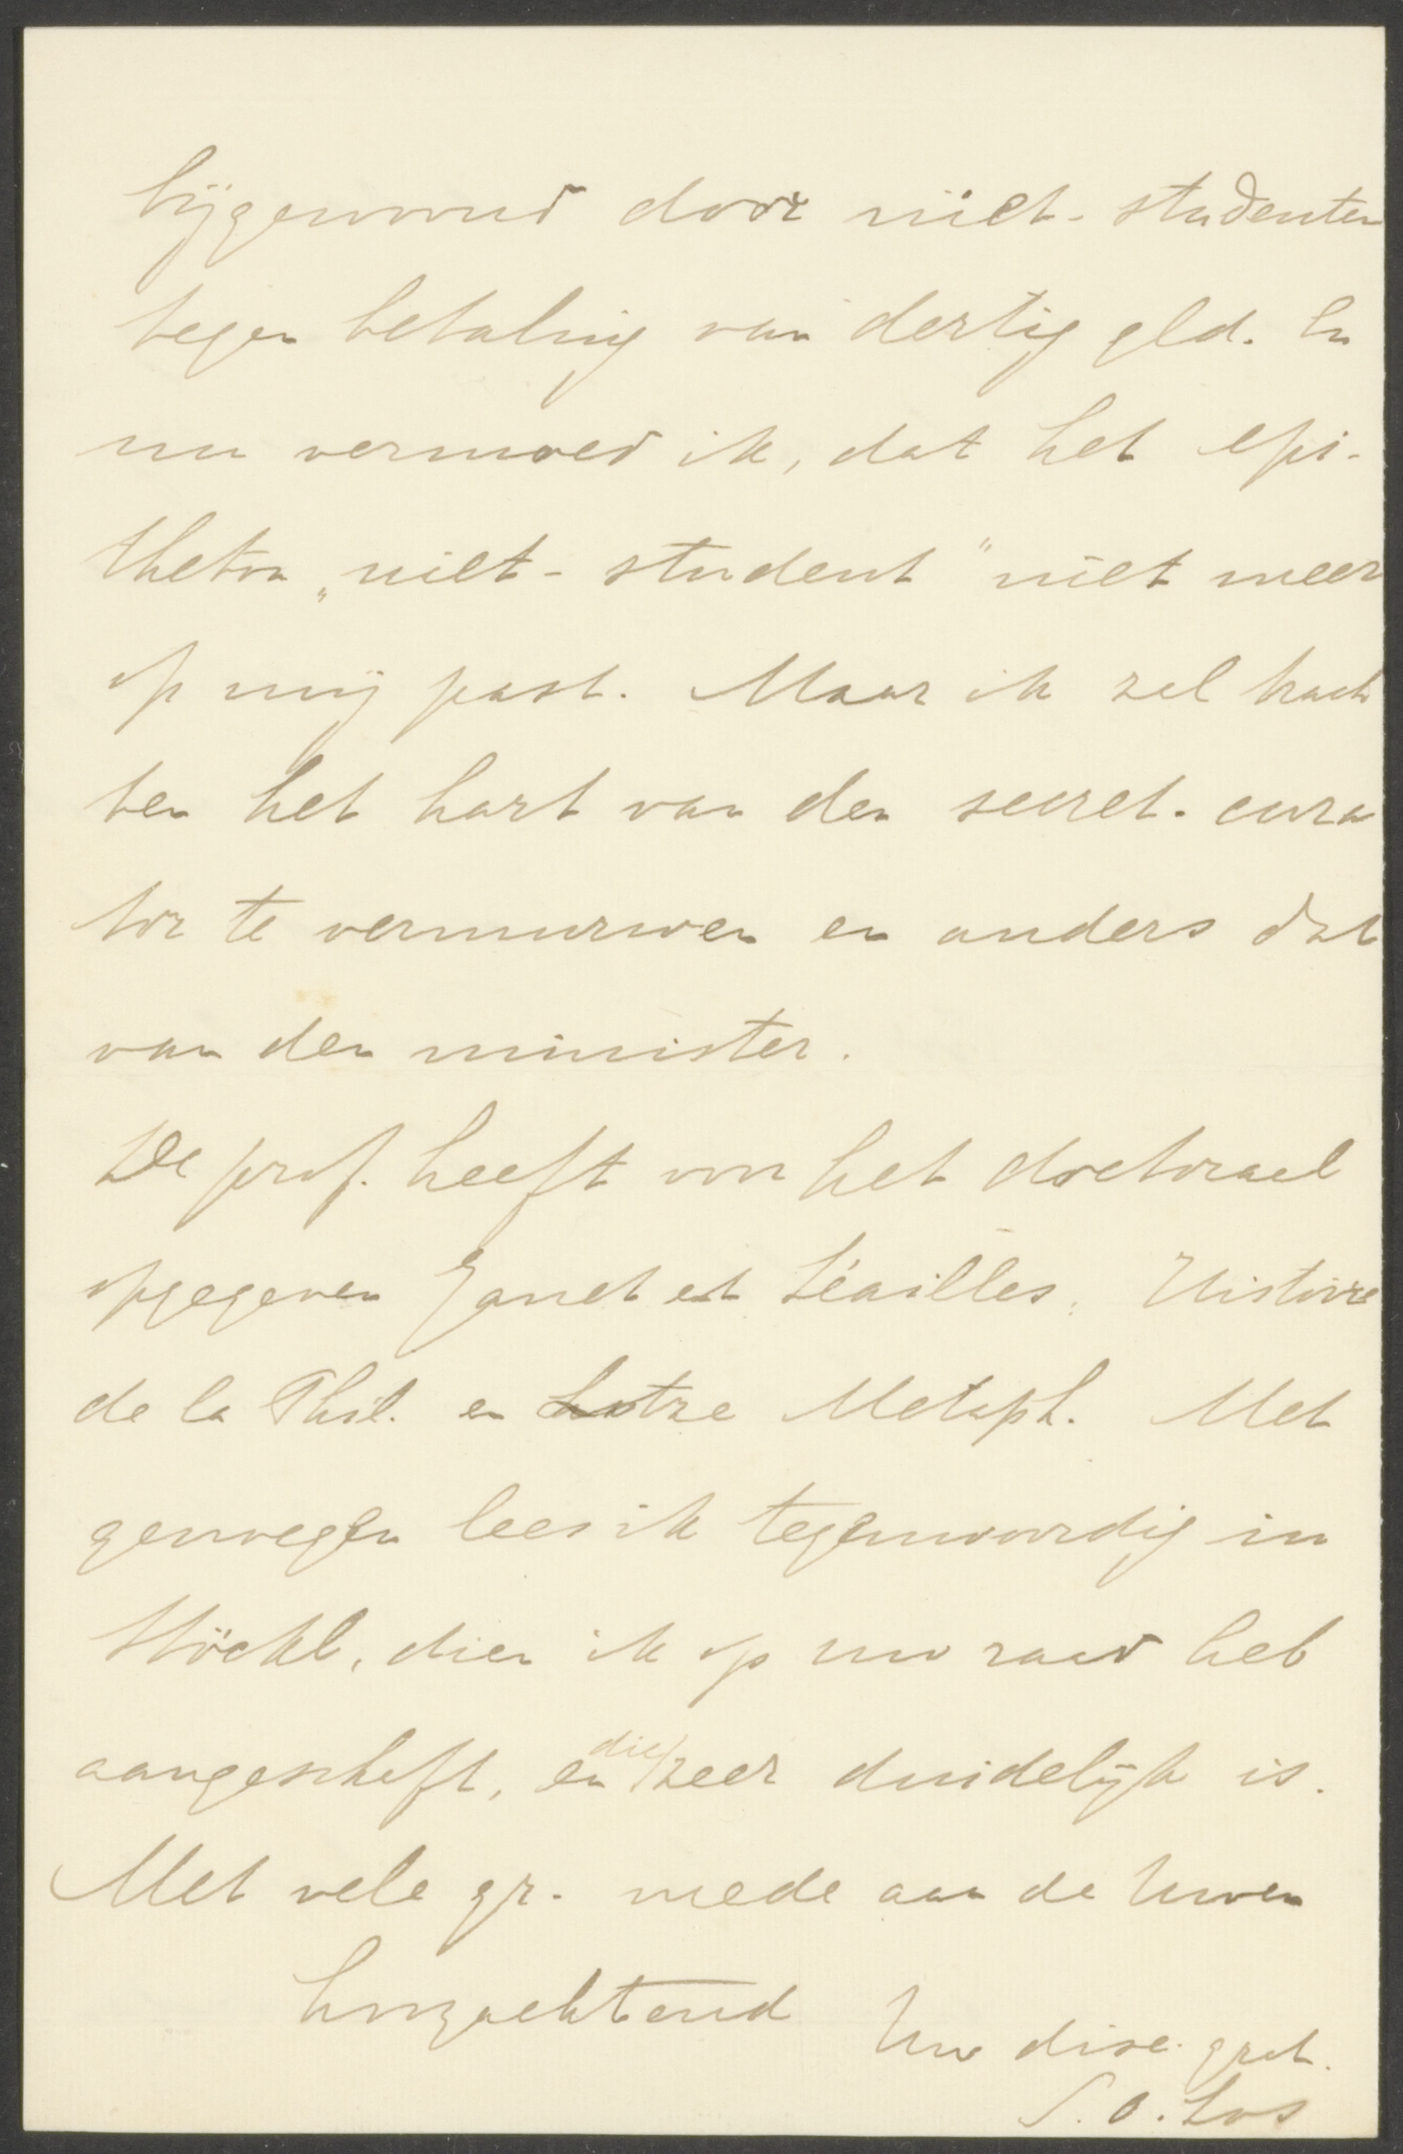 bijgewoond door niet-studenten
tegen betaling van dertig gld. En
nu vermoed ik, dat het epi-
theton „niet-student" niet meer
op mij past. Maar ik zal trach
ten het hart van den secret. cura
tor te vermurwen en anders dat
van den minister.
De prof. heeft voor het doctoraal
opgegeven Janet et Séailles, Histoire
de la Phil. en Lotze Metaph. Met
genoegen lees ik tegenwoordig in
Stöckl, dien ik op uw raad heb
aangeschaft, en die zeer duidelijk is.
Met vele gr. mede aan de Uwen
hoogachtend
Uw disc. grat.
S. O. Los